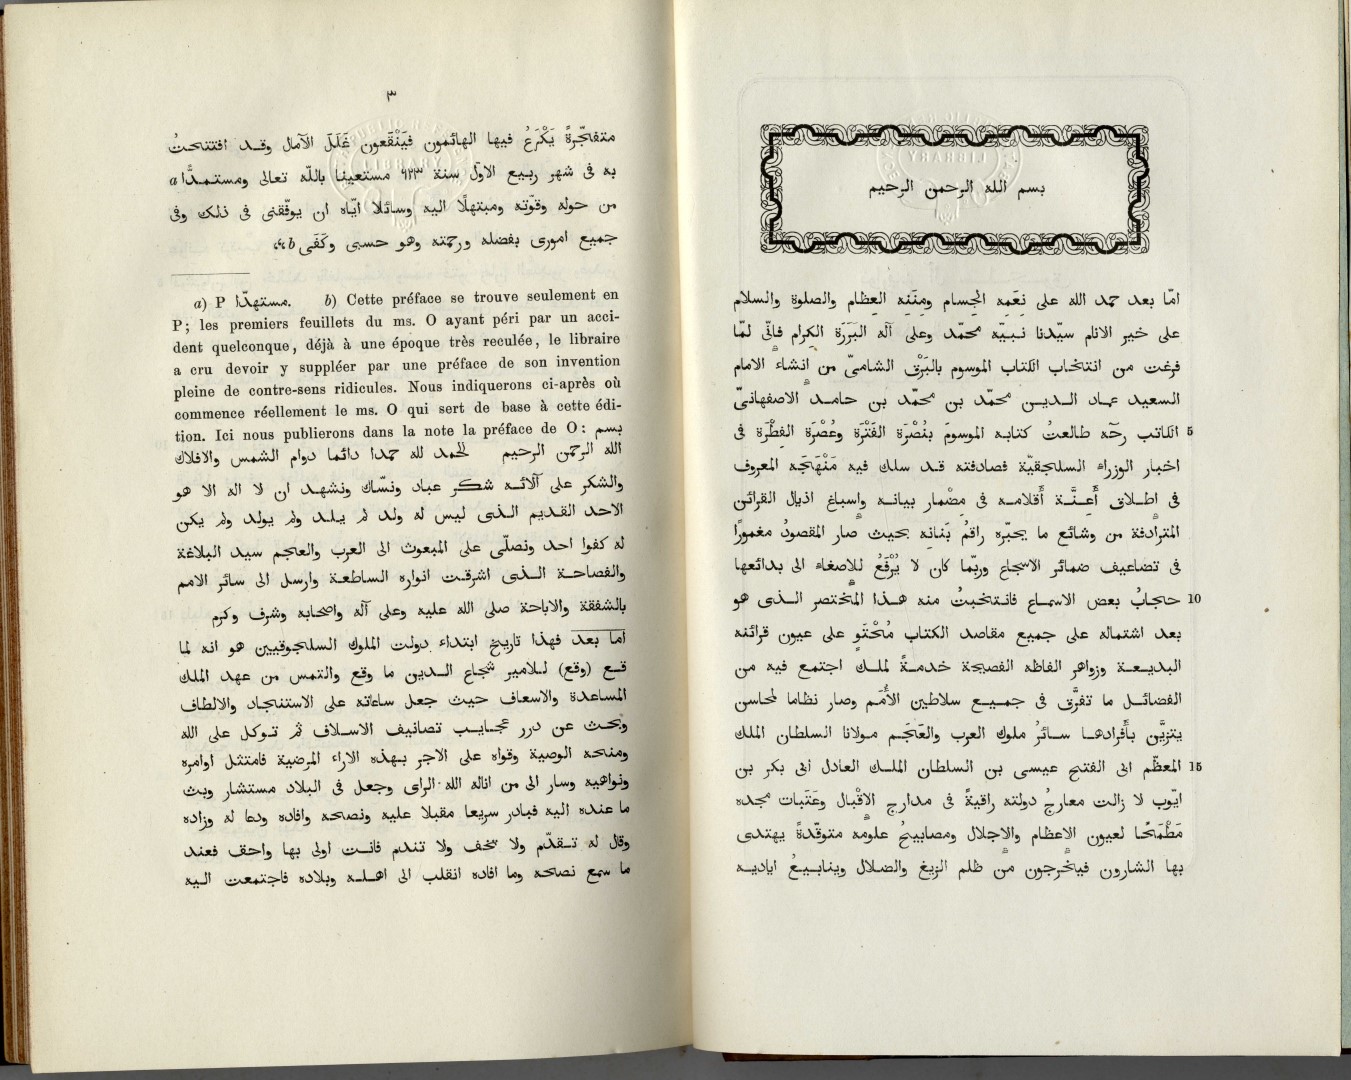 بسم الله الرحمن الرحيم
امّا بعد حمد الله على نِعَمِه الجِسام ومِنَنِه العِظام والصلوة والسلام
على خير الانام سيّدنا نبيّه محمّد وعلى آله البَرَرَة الكِرام فانّى لمّا
فرغت من انتخاب الكتاب الموسوم بالبَرْق الشامىّ من إنشاء الامام
السعيد عماد الدين محمّد بن محمّد بن حامد الاصفهانىّ
الكاتب رحّه طالعتُ كتابه الموسومَ بنُصْرَة الفَتْرَة وعُصْرَة الفِطْرَة فى 5
اخبار الوزراء السلجقيّة فصادفته قد سلك فيه مَنْهَجَه المعروف
فى إطلاق أَعِنَّة أَقلامه فى مِضْمار بيانه وإسباغ اذيال القرائن
المترادفة من وشائع ما يحبّره راقمُ بَنانِه بحيث صار المقصودُ مغمورًا
فى تضاعيف ضمائر الاسجاع وربّما كان لا يُرْفَعُ للإصغاء الى بدائعها
حجابُ بعض الاسماع فانتخبتُ منه هذا المختصر الذى هو 10
بعد اشتماله على جميع مقاصد الكتاب مُحْتَوٍ على عيون قرائنه
البديعة وزواهر الفاظه الفصيحة خدمةً لملك اجتمع فيه من
الفضائل ما تفرَّق فى جميع سلاطين الأُمَم وصار نظاما لمحاسن
يتزيَّن بأَفرادها سائرُ ملوك العرب والعَجَم مولانا السلطان الملك
المعظّم ابى الفتح عيسى بن السلطان الملك العادل ابى بكر بن 15
ايّوب لا زالت معارجُ دولته راقيةً فى مدارج الإقْبال وعَتَبات مجده
مَطْمَحًا لعيون الإعظام والإجلال ومصابيحُ علومه متوقّدةً يهتدى
بها الشارون فيخرجون من ظلم الزيغ والضلال وينابيعُ اياديه
٣
متفجّرةً يَكْرَعُ فيها الهائمون فيَنْقَعون غَلَلَ الآمال وقد افتتحتُ
به فى شهر ربيع الاوّل سنة ٦٢٣ مستعينا باللّه تعالى ومستمدًّا a
من حوله وقوّته ومبتهلًا اليه وسائلا ايّاه ان يوفّقنى فى ذلك وفى
جميع امورى بفضله ورحمته وهو حسبى وكَفَى b
a) P مستهدّا. b) Cette préface se trouve seulement en
P; les premiers feuillets du ms. O ayant péri par un acci-
dent quelconque, déjà à une époque très reculée, le libraire
a cru devoir y suppléer par une préface de son invention
pleine de contre-sens ridicules. Nous indiquerons ci-après où
commence réellement le ms. O qui sert de base à cette édi-
tion. Ici nous publierons dans la note la préface de O: بسم
الله الرحمن الرحيم الحمد لله حمدا دائما دوام الشمس والافلاك
والشكر على آلائه شكر عباد ونسّاك ونشهد ان لا اله الا هو
الاحد القديم الذى ليس له ولد لم يلد ولم يولد ولم يكن
له كفوا احد ونصلّى على المبعوث الى العرب والعجم سيد البلاغة
والفصاحة الذى اشرقت انواره الساطعة وارسل الى سائر الامم
بالشفقة والاباحة صلى الله عليه وعلى آله واصحابه وشرف وكرم
اما بعد فهذا تاريخ ابتداء دولت الملوك السلجوقيين هو انه لما
قع (وقع) للامير شجاع الدين ما وقع والتمس من عهد الملك
المساعدة والاسعاف حيث جعل ساعاته على الاستنجاد والالطاف
وبحث عن درر عجايب تصانيف الاسلاف ثم توكل على الله
ومنحه الوصية وقواه على الاجر بهذه الاراء المرضية فامتثل اوامره
ونواهيه وسار الى من اناله الله الراى وجعل فى البلاد مستشار وبث
ما عنده اليه فبادر سريعا مقبلا عليه ونصحه وافاده ودعا له وزاده
وقال له تقدّم ولا تخف ولا تندم فانت اولى بها واحق فعند
ما سمع نصحه وما افاده انقلب الى اهله وبلاده فاجتمعت اليه